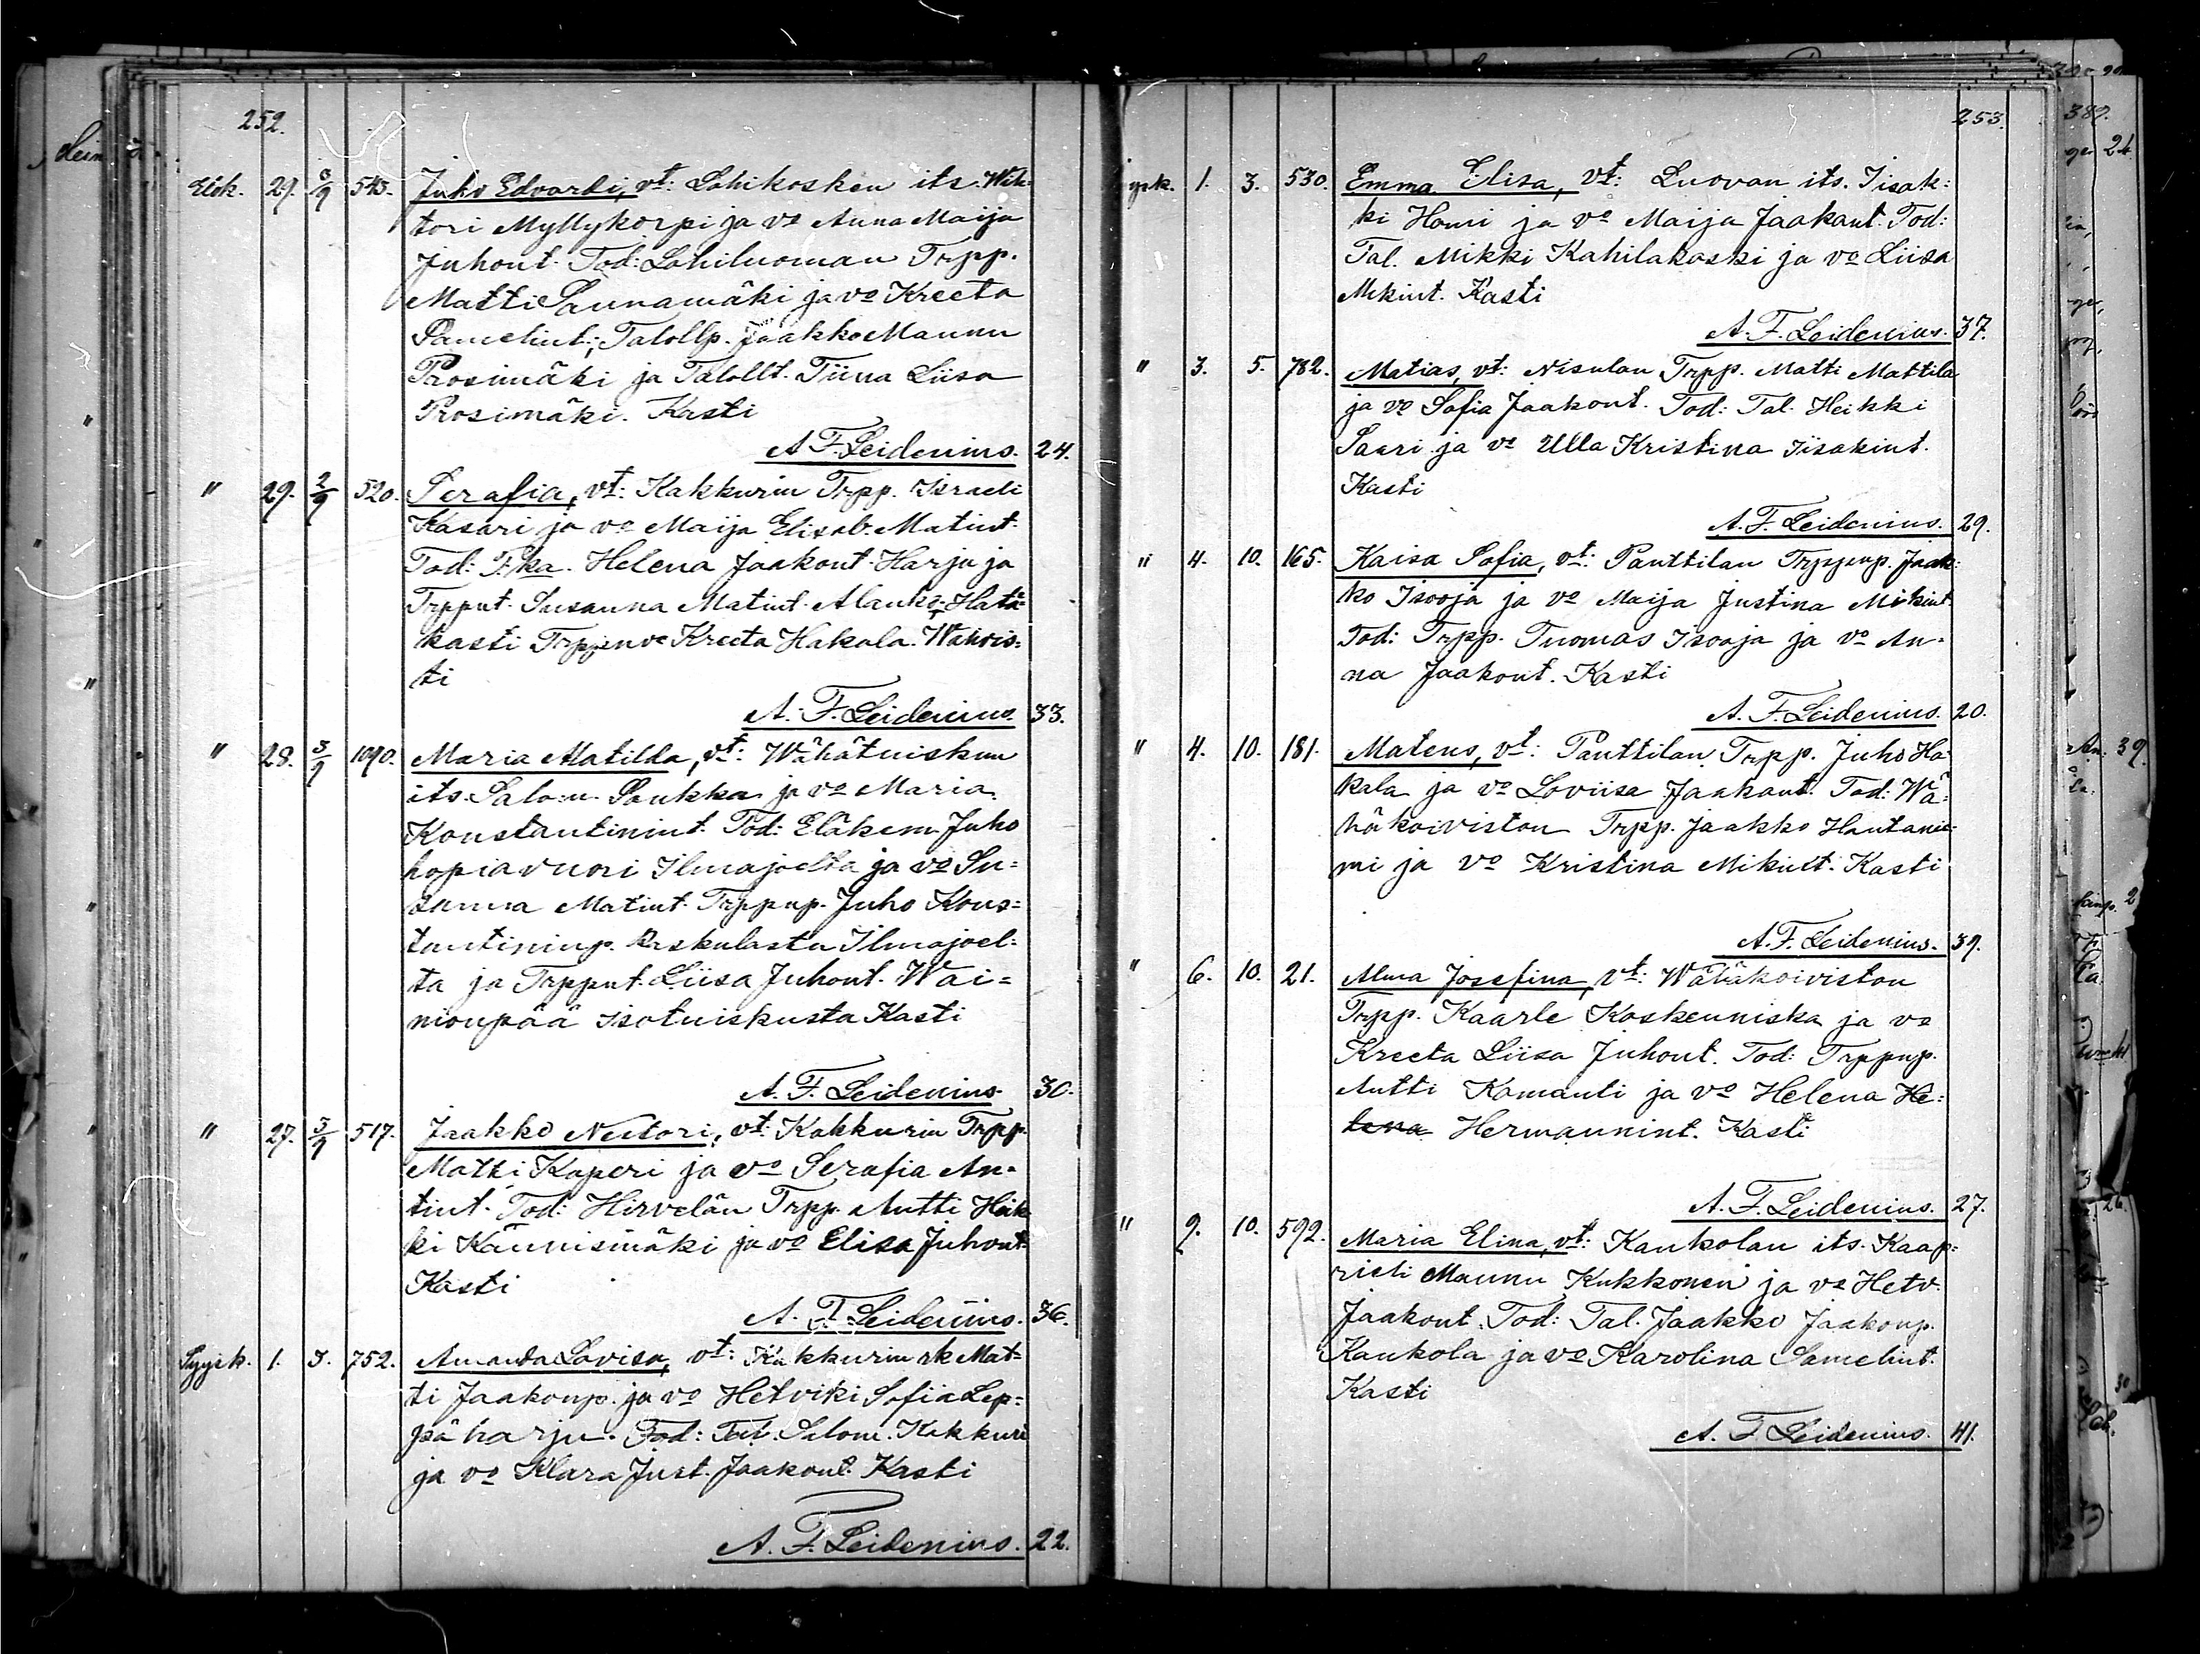 252.
Elok. 29. 3/9 543. Juho Edvardi, vt: Lohikosken its. Wih-
tori Myllykorpi ja vo Anna Maija
Juhont. Tod: Lohiluoman Trpp.
Matti Saunamäki ja vo Kreeta
Samelint.; Talollp. Jaakko Maunu
Prosimäki ja Talollt. Tiina Liisa
Prosimäki. Kasti
A. F. Leidenius. 24.
" 29. 2/9 520. Serafia, vt: Kakkurin Trpp. Israeli
Kasari ja vo Maija Elisab. Matint.
Tod: P.ka. Helena Jaakont. Harju ja
Trpput. Susanna Matint. Alanko. Hätä-
kasti Trppinvo Kreeta Hakala. Wahvis-
ti
A. F. Leidenius. 33.
" 28. 3/9 1090. Maria Matilda, vt: Wähätuiskun
its. Salom. Saukka ja vo Maria
Konstantinint. Tod: Eläkem. Juho
hopiavuori Ilmajoelta ja vo Su-
sanna Matint. Trppup. Juho Kons-
tantininp. Koskulasta Ilmajoel-
ta ja Trpput. Liisa Juhont. Wai-
nionpää isotuiskusta Kasti
A. F. Leidenius. 30.
" 27. 3/9 517. Jaakko Nestori, vt: Kakkurin Trpp.
Matti Kaperi ja vo Serafia An-
tint. Tod: Hirvelän Trpp. Antti Heik
ki Kaunismäki ja vo Elisa Juhont.
Kasti
A. F. Leidenius. 36.
Syysk. 1. 3. 752. Amanda Lovisa, vt: Kakkurin rk Mat-
ti Jaakonp. ja vo Hetviki Sofia Lep-
päharju. Tod: Tal. Salom. Kakkuri
ja vo Klara Just. Jaakont. Kasti
A. F. Leidenius. 22.
253.
ysk. 1. 3. 530. Emma Elisa, vt: Luovan its. Iisak-
ki Homi ja vo Maija Jaakont. Tod:
Tal. Mikki Kahilakoski ja vo Liisa
Mikint. Kasti
A. F. Leidenius. 37.
" 3. 5. 782. Matias, vt: Nisulan Trpp. Matti Mattila
ja vo Sofia Jaakont. Tod: Tal. Heikki
Saari ja vo Ulla Kristina Iisakint.
Kasti
A. F. Leidenius. 29.
" 4. 10. 165. Kaisa Sofia, vt: Panttilan Trppnp. Jaak-
ko Isooja ja vo Maija Justina Mikint.
Tod: Trpp. Tuomas Isooja ja vo An-
na Jaakont. Kasti
A. F. Leidenius. 20.
" 4. 10. 181. Mateus, vt: Panttilan Trpp. Juho Ha-
kala ja vo Loviisa Jaakont. Tod: Wä-
häkoiviston Trpp. Jaakko Hautanie-
mi ja vo Kristina Mikint. Kasti
A. F. Leidenius. 39.
" 6. 10. 21. Alma Josefina, vt: Wähäkoiviston
Trpp. Kaarle Koskenniska ja vo
Kreeta Liisa Juhont. Tod: Trppup.
Antti Komanti ja vo Helena He-
lena Hermannint. Kasti
A. F. Leidenius. 27.
" 9. 10. 592. Maria Elina, vt: Kaukolan its. Kaap-
rieli Maunu Kukkonen ja vo Hetv.
Jaakont. Tod: Tal. Jaakko Jaakonp.
Kaukola ja vo Karolina Samelint.
Kasti
A. F. Leidenius. 41.